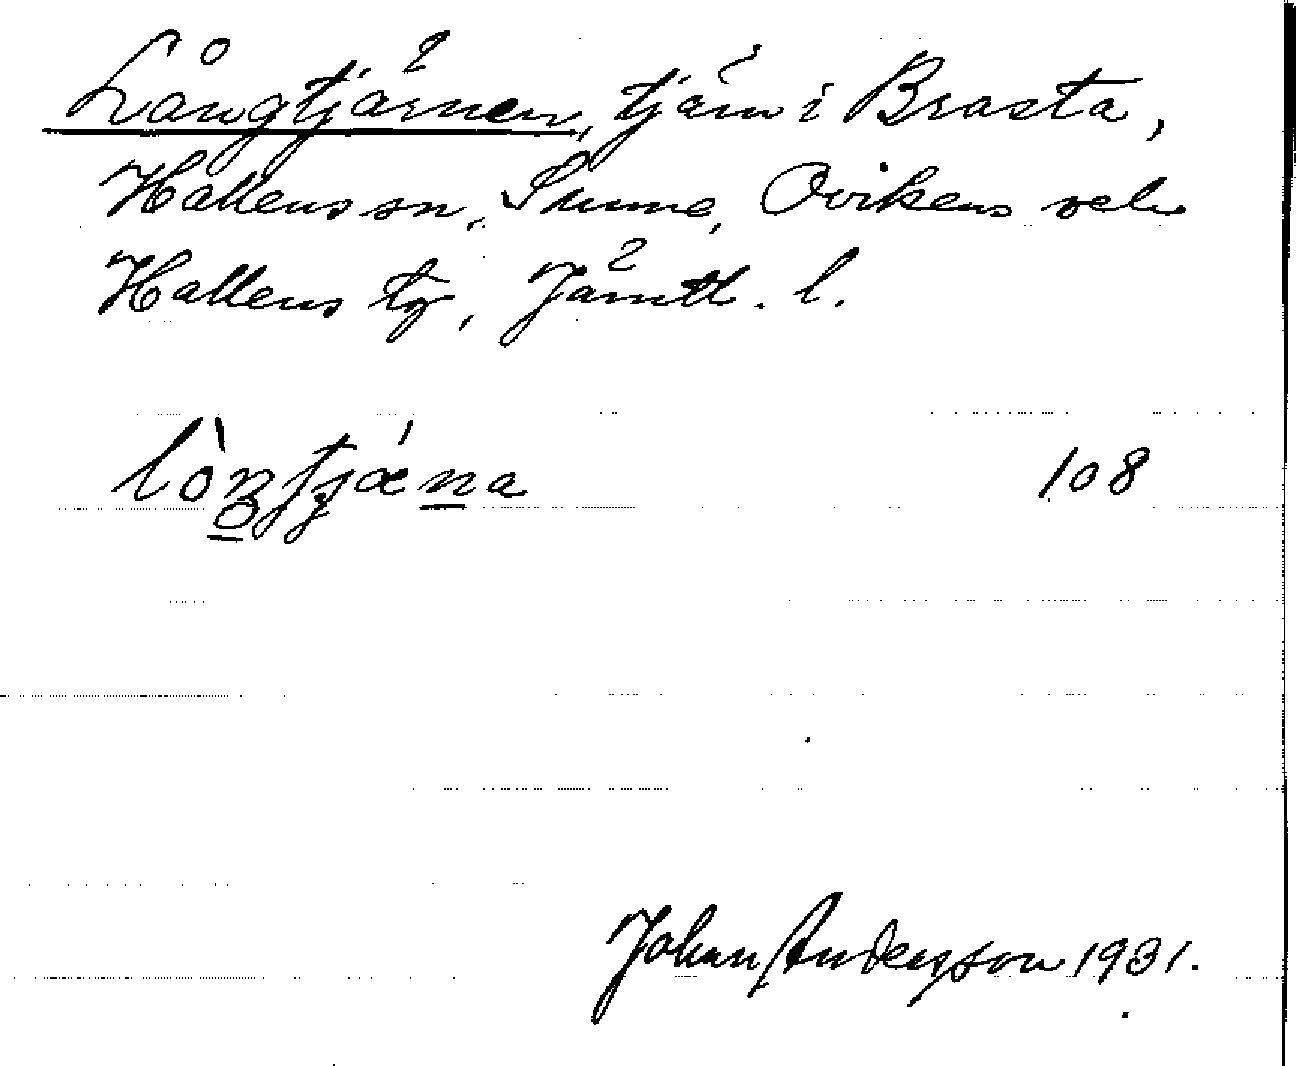 Långtjärnen, tjärn i Brasta,
Hallens sn, Sunne, Ovikens och
Hallens tg, Jämtl. l.
108
Johan Andersson 1931.